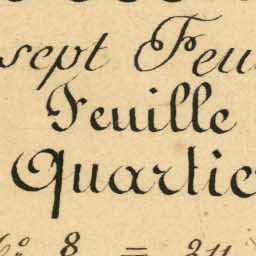 sept Feu
Feuille
Quartie
8 = 211